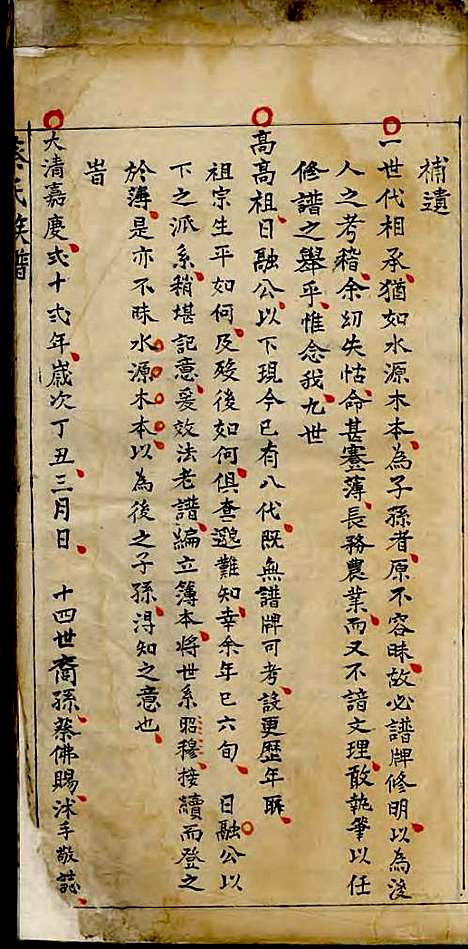 補遺
一世代相承猶如水源木本為子孫者原不容昧故必譜牌修明以為後
人之考稽余幼失怙命甚蹇薄長務農業而又不諳文理敢執筆以任
修譜之舉乎惟念我九世
高高祖日融公以下現今已有八代既無譜牌可考設更歷年
祖宗生平如何及歿後如何俱查邈難知幸余年已六旬 日融公以
下之派系稍堪記意爰效法老譜編立簿本將世系昭穆接續而登之
於薄是亦不昧水源木本以為後之子孫淂知之意也
旹
大清嘉慶弍十弍年歲次丁丑三月日 十四世裔孫蔡佛賜沐手敬誌
蔡氏族譜